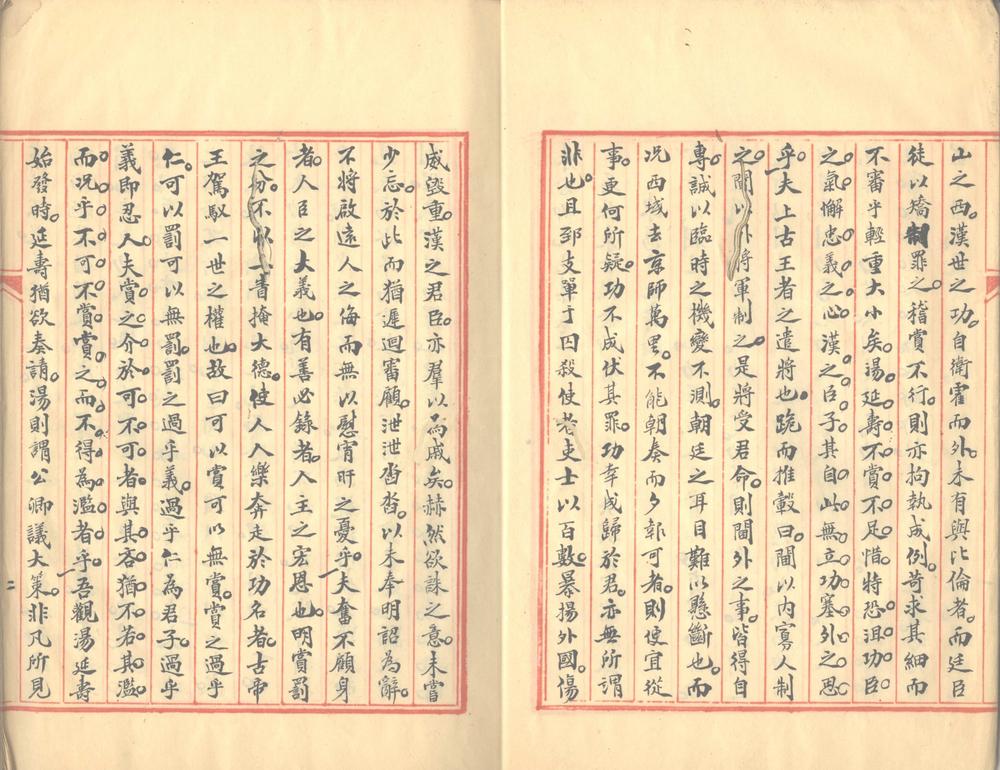 山之西。漢世之功。自衛霍而外。未有與比倫者。而廷臣
徒以矯制罪之。稽賞不行。則亦拘執成例。苛求其細而
不審乎輕重大小矣。湯延壽不賞不足惜。特恐沮功臣
之氣。懈忠義之心。漢之臣子。其自此無立功塞外之思
乎。夫上古王者之遣將也。跪而推轂曰。閫以內寡人制
之。閫以外將軍制之。是將受君命。則閫外之事。皆得自
專。誠以臨時之機變不測。朝廷之耳目難以懸斷也。而
况西域去京師萬里。不能朝奏而夕報可者。則便宜從
事。更何所疑。功不成伏其罪。功幸成歸於君。亦無所謂
非也。且郅支單于囚殺使者吏士以百數。暴揚外國。傷
威毀重。漢之君臣。亦羣以為戚矣。赫然欲誅之意。未嘗
少忘。於此而猶遲迴審顧。泄泄沓沓。以未奉明詔為辭。
不將啟遠人之侮而無以慰宵旰之憂乎。夫奮不顧身
者。人臣之大義也。有善必錄者。人主之宏恩也。明賞罰
之分。不以一眚掩大德。使人人樂奔走於功名者。古帝
王駕馭一世之權也。故曰可以賞可以無賞。賞之過乎
仁。可以罰可以無罰。罰之過乎義。過乎仁為君子。過乎
義即忍人。夫賞之介於可不可者。與其吝猶不若其濫。
而况乎不可不賞。賞之而不得為濫者乎。吾觀湯延壽
始發時。延壽猶欲奏請。湯則謂公卿議大策。非凡所見
二